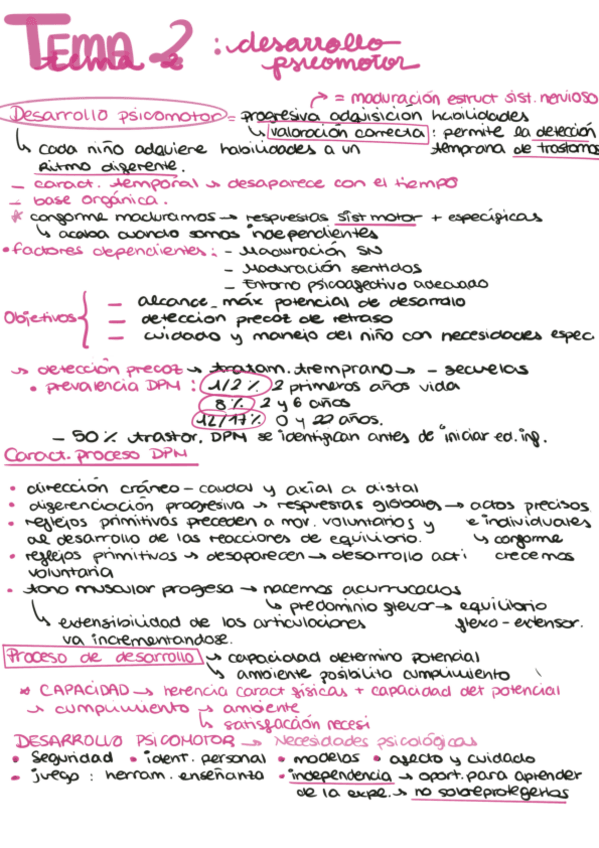 TEMA 2 : desarrollo
tema 2 psicomotor
↱ = maduración estruct sist. nervioso
Desarrollo psicomotor = progresiva adquisición habilidades
↳ valoración correcta : permite la detección
↳ cada niño adquiere habilidades a un temprana de trastornos
Ritmo diferente.
— caract. temporal ↳ desaparece con el tiempo
— base orgánica.
* conforme maduramos → respuestas sist motor + específicas
↳ acaba cuando somos independientes
• factores dependientes : - Maduración SN
- Maduración sentidos
- Entorno psicoafectivo adecuado
— alcance máx potencial de desarrollo
Objetivos { — detección precoz de retraso
— cuidado y manejo del niño con necesidades espec.
↳ detección precoz ↳ tratam. tremprano ↳ - secuelas
• prevalencia DPM : 1/2 % 2 primeros años vida
8 % 2 y 6 años
12/17 % 0 y 22 años.
— 50 % trastor. DPM se identifican antes de iniciar ed. inf.
Caract. proceso DPM
• dirección cráneo - caudal y axial a distal
• diferenciación progresiva ↳ respuestas globales → actos precisos
• reflejos primitivos preceden a mov. voluntarios y e individuales
al desarrollo de las reacciones de equilibrio. ↳ conforme
• reflejos primitivos ↳ desaparecen → desarrollo acti crecemos
voluntaria
• tono muscular progresa → nacemos acurrucados
↳ predominio flexor → equilibrio
↳ extensibilidad de las articulaciones flexo - extensor.
va incrementandose.
Proceso de desarrollo ↳ capacidad determino potencial
↳ ambiente posibilita cumplimiento
* CAPACIDAD → herencia caract físicas + capacidad det potencial
↳ cumplimiento ↳ ambiente
↳ satisfacción necesi
DESARROLLO PSICOMOTOR → Necesidades psicológicas
• Seguridad • ident. personal • modelos • afecto y cuidado
• juego : herram. enseñanta • independencia → oport. para aprender
de la expe. ↳ no sobreprotegerlos